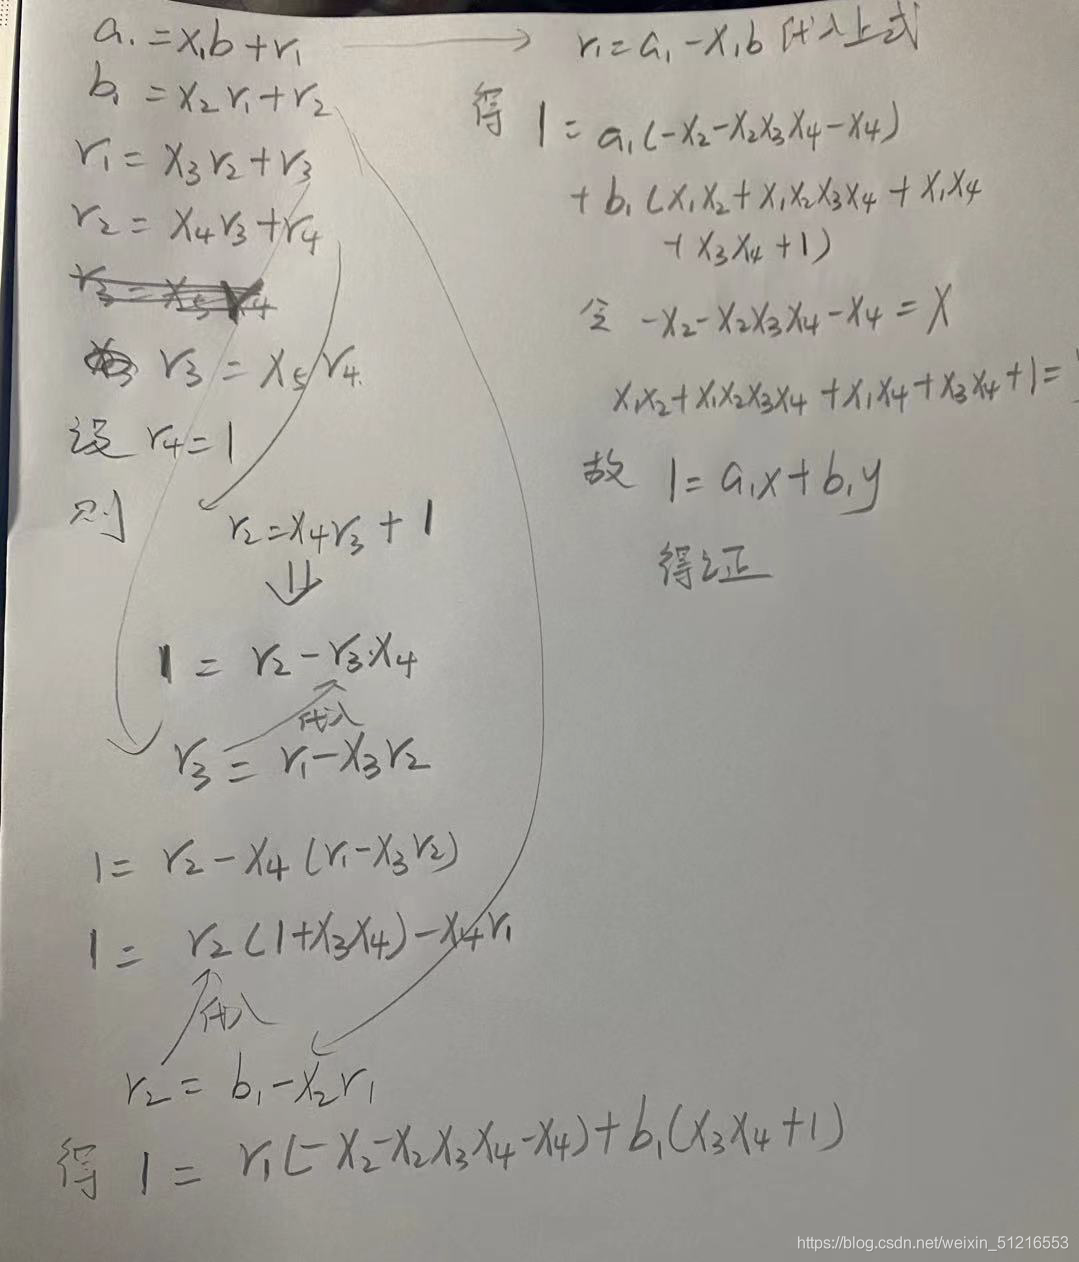 a₁=x₁b+r₁
b₁=x₂r₁+r₂
r₁=x₃r₂+r₃
r₂=x₄r₃+r₄
r₃=x₅r₄
r₃=x₅r₄.
设 r₄=1
则 r₂=x₄r₃+1
⇓
1=r₂-r₃·x₄
代入
r₃=r₁-x₃r₂
1=r₂-x₄(r₁-x₃r₂)
1=r₂(1+x₃x₄)-x₄r₁
代入
r₂=b₁-x₂r₁
得 1=r₁(-x₂-x₂x₃x₄-x₄)+b₁(x₃x₄+1)
r₁=a₁-x₁b 代入上式
得 1=a₁(-x₂-x₂x₃x₄-x₄)
+b₁(x₁x₂+x₁x₂x₃x₄+x₁x₄
+x₃x₄+1)
令 -x₂-x₂x₃x₄-x₄=X
x₁x₂+x₁x₂x₃x₄+x₁x₄+x₃x₄+1=
故 1=a₁x+b₁y
得证
https://blog.csdn.net/weixin_51216553